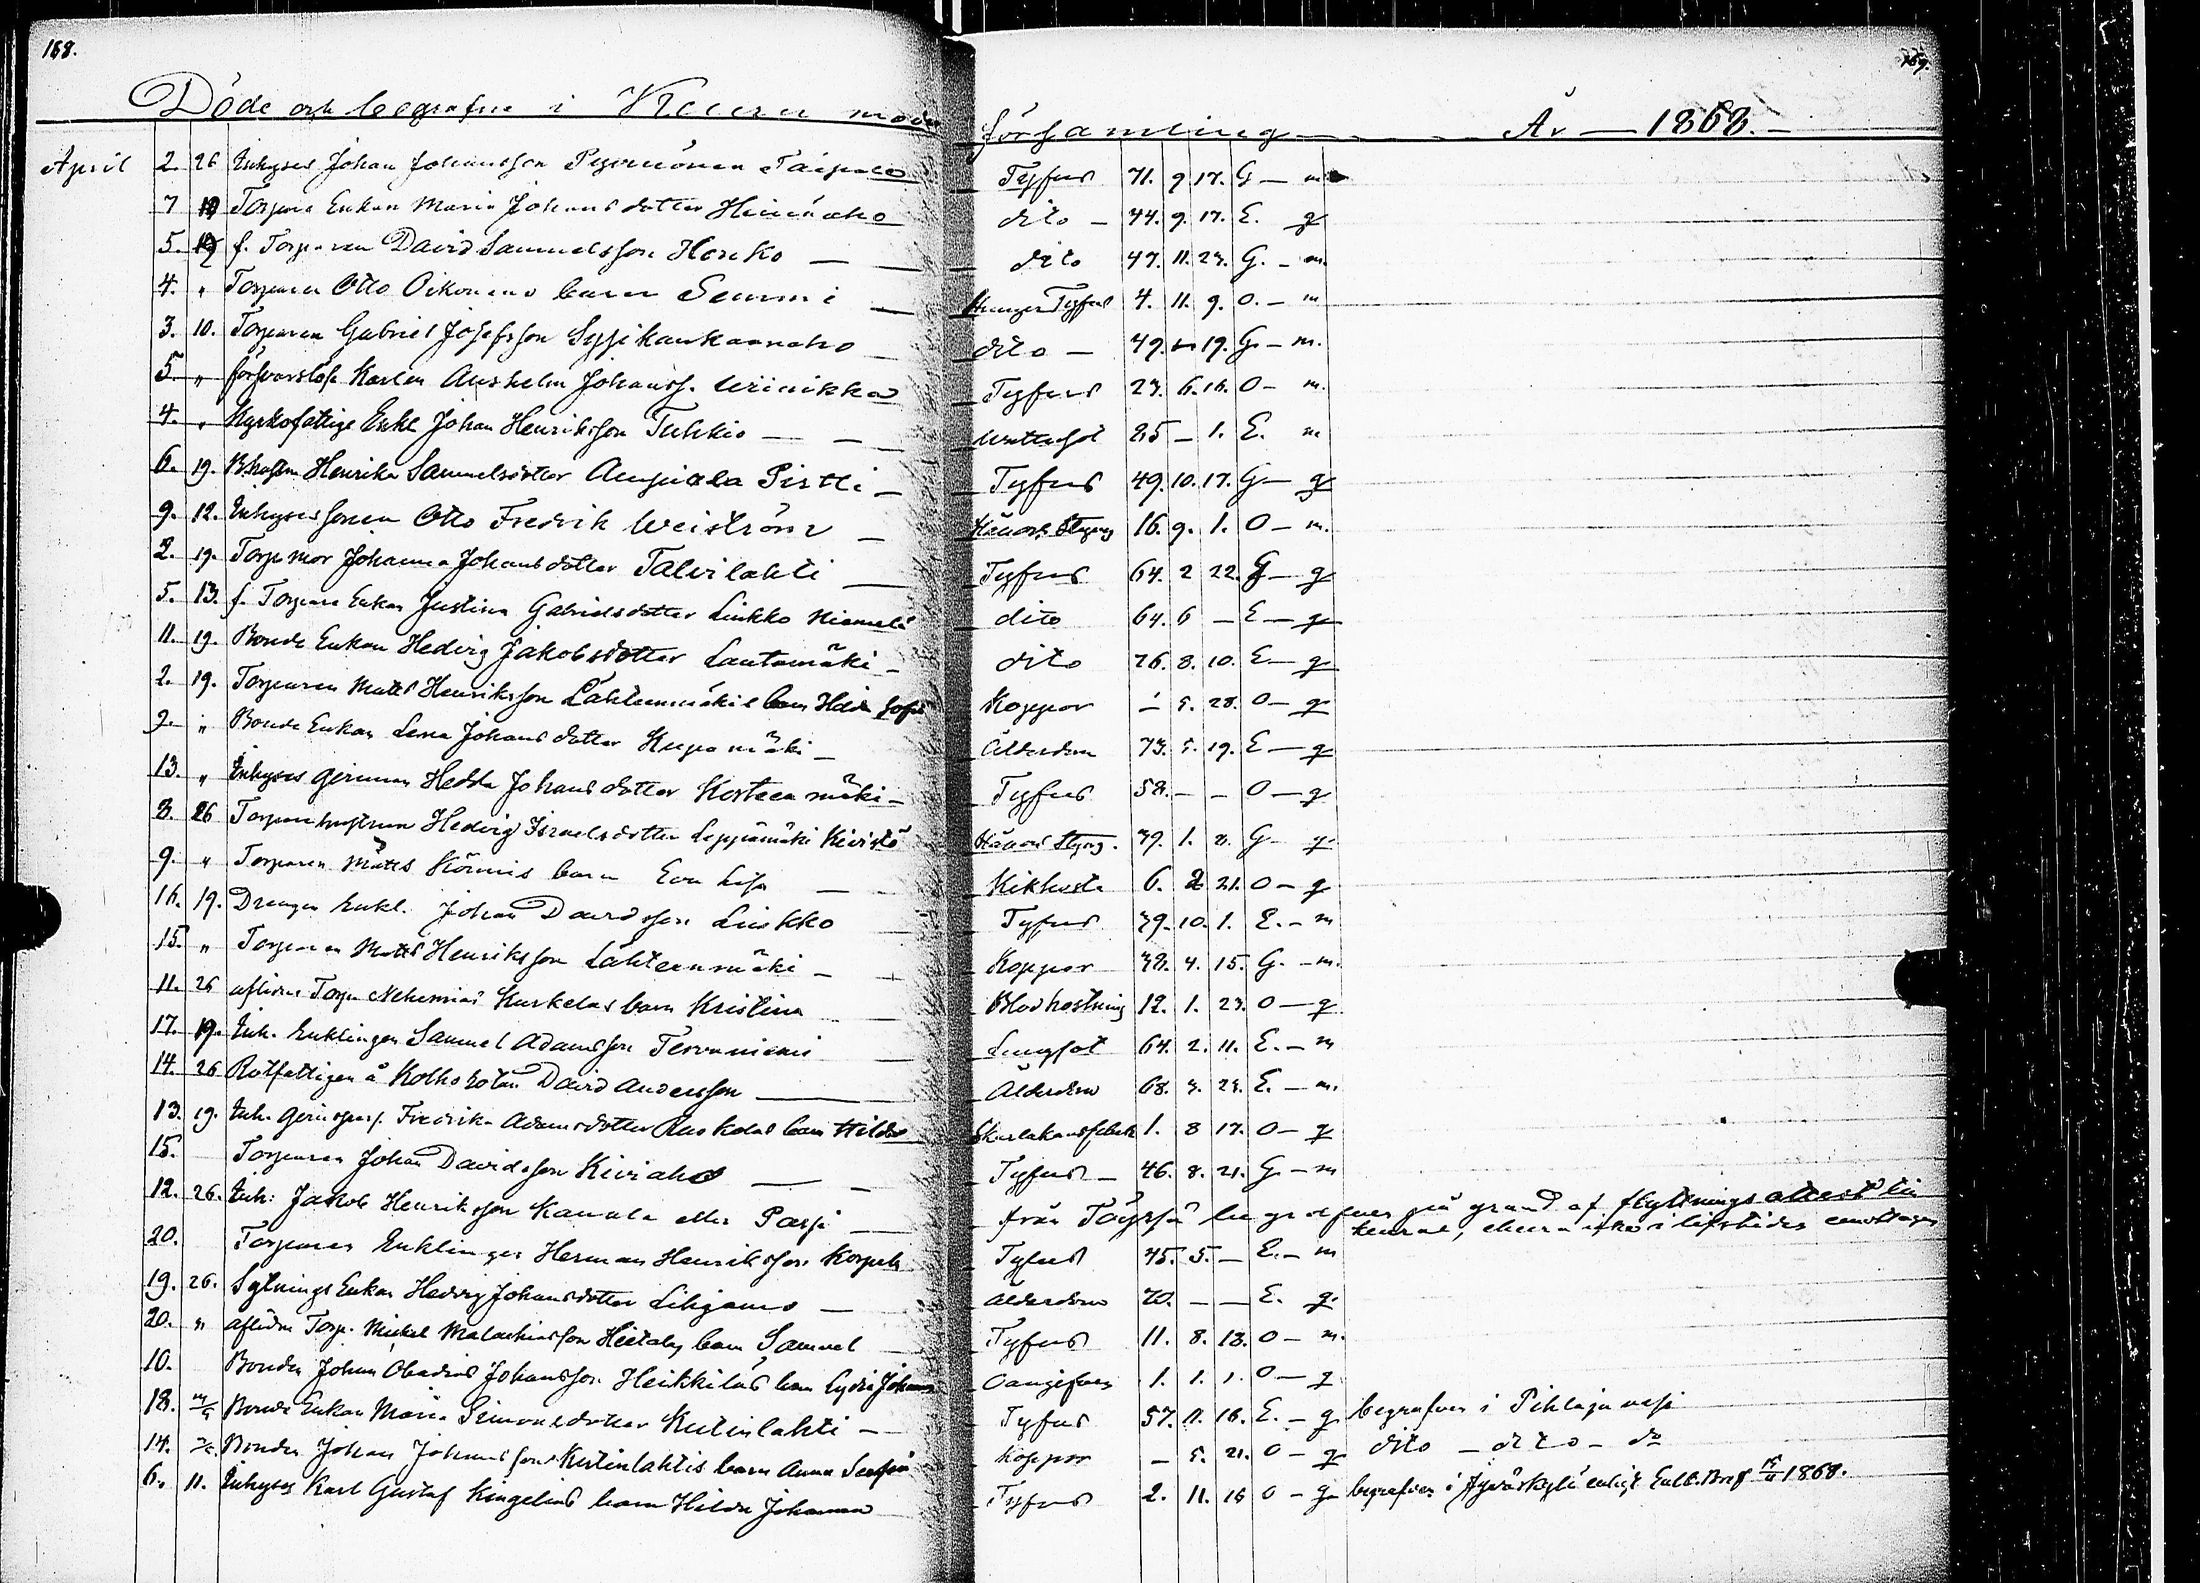 168.
169.
Döde och begrafne i Keuru moder församling — År — 1868. —
April 2 26 Inhyses Johan Johansson Taipale Tyfus 71. 9 17. G — m
7 Torpare Enkan Maria Johansdotter Heinäaho dito — 44. 9. 17. E. q
5. f. Torparen David Samuelsson Honko — dito 47. 11. 23. G. — m.
4. " Torparen Otto Oikonens barn Hunger Tyfus 4. 11. 9. O. — m
3. 10. Torparen Gabriel Josefsson dito — 49. — 19. G — m.
5 " försvarslöse Karlen Anshelm Johanss. Tyfus 23. 6. 16. O — m.
4. " Kyrkofattige Enkl Johan Henriksson Tuhkio — Wattusot 85 — 1. E. m
6. 19. Henrika Samuelsdotter Ampiala Pirtti — Tyfus 49. 10. 17. G — q
9. 12. Inhyses sonen Otto Fredrik Weiström — Håll och Styng 16. 9. 1. O — m.
2. 19. Torp mor Johanna Johansdotter Talvilahti Tyfus 64. 2 22. G — q
5. 13. f. Torpare Enkan Justina Gabrielsdotter Liukko Niemelä dito 64. 6 — E — q
11. 19. Bonde Enkan Hedvig Jakobsdotter Lautamäki — dito 76. 8. 10. E — q
2. 19. Torparen Matts Henriksson Lähteenmäkis barn Hilda Sofia Koppor — 5. 28. O — q
9. " Bonde Enkan Lena Johansdotter — Ålderdom 73. 5. 19. E — q
13. " Inhyses qvinnan Hedda Johansdotter Kosteenmäki — Tyfus 58. — — O — q
8. 26 Torpare hustrun Hedvig Israelsdotter Leppämäki Kivistö Håll och Styng. 39. 1. G — q
9. " Torparen Matts barn Eva Lisa — Kikhosta 6. 2 21. O — q
16. 19. Drengen Enkl. Johan Davidsson Liukko Tyfus 39. 10. 1. E. — m
15. " Torparen Matts Henriksson Lähteenmäki — Koppor 38. 4. 15. G. — m.
11. 26 aflidne Torp. Nehemias Kurkelas barn Kristina Blodhostning 12. 1. 23. O — q
17. 19. Inh. Enklingen Samuel Adamsson Tervaniemi Lungsot 64. 2. 11. E. — m
14. 26 Rotfattigen å Kolho David Andersson — Ålderdom 68. 3. 23. E. — m.
13. 19. Inh. Fredrika Adamsdotter barn Hilda Skarlakansfeber 1. 8 17. O — q
15. Torparen Johan Davidsson Kiviaho — Tyfus — 46. 8. 21. G — m
12. 26. Inh: Jakob Henriksson Kanala eller Parsi — från Töysä begrafven på grund af flyttningsattest till
Keuru, ehuru icke i lifstiden emottagen
20. Torparen Enklingen Herman Henriksson Korpela Tyfus 45. 5. — E. — m
19. 26. Sytnings Enkan Hedvig Johansdotter — Ålderdom 70. — — E. q.
20. " aflidne Torp. Mickel Malachiasson barn Samuel Tyfus 11. 8. 13. O — m.
10. Bonden Johan Obadias Johansson Heikkiläs barn Lydia Johanna Oangifven 1. 1. 1. O — q
18. Bonde Enkan Maria Simonsdotter Kutinlahti — Tyfus 57. 11. 16. E. — q begrafven i Pihlajavesi
14. Bonden Johan Johansson Kutinlahtis barn Anna Serafia Koppor — 5. 21. O — q dito — dito — do
6. 11. Inhyses Karl Gustaf Kingelins barn Hilda Johanna Tyfus 2. 11. 16 O — q begrafven i Jyväskylä enligt Embt. Bref 1868.